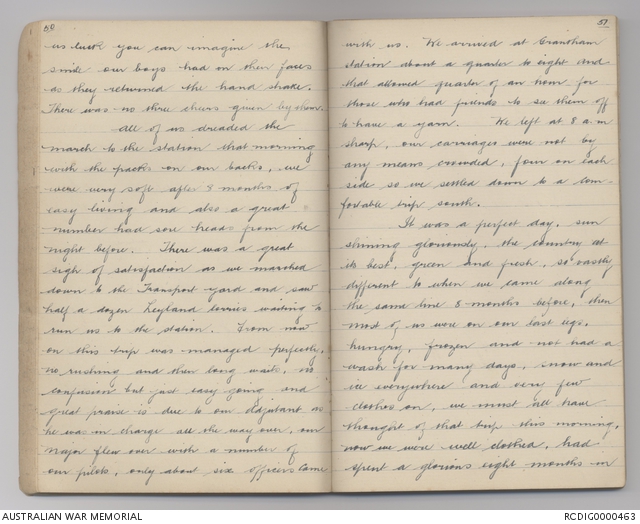 50
us luck you can imagine the
smile our boys had on their faces
as they returned the hand shake.
There was no three cheers given by them.
All of us dreaded the
march to the station that morning
with the packs on our backs, we
were very soft after 8 months of
easy living and also a great
number had sore heads from the
night before. There was a great
sigh of satisfaction as we marched
down to the Transport yard and saw
half a dozen Leyland lorries waiting to
run us to the station. From now
on this trip was managed perfectly,
no rushing and then long waits, no
confusion but just easy going and
great praise is due to our Adjutant as
he was in charge all the way over, our
Major flew over with a number of
our pilots, only about six officers came
51
with us. We arrived at Grantham
station about a quarter to eight and
that allowed quarter of an hour for
those who had friends to see them off
to have a yarn. We left at 8 a.m
sharp, our carriages were not by
any means crowded, four on each
side so we settled down to a com-
fortable trip south.
It was a perfect day, sun
shining gloriously, the country at
its best, green and fresh, so vastly
different to when we came along
the same line 8 months before, then
most of us were on our last legs,
hungry, frozen and not had a
wash for many days, snow and
ice everywhere and very few
clothes on, we must all have
thought of that trip this morning,
now we were well clothed, had
spent a glorious eight months in
AUSTRALIAN WAR MEMORIAL
RCDIG0000463